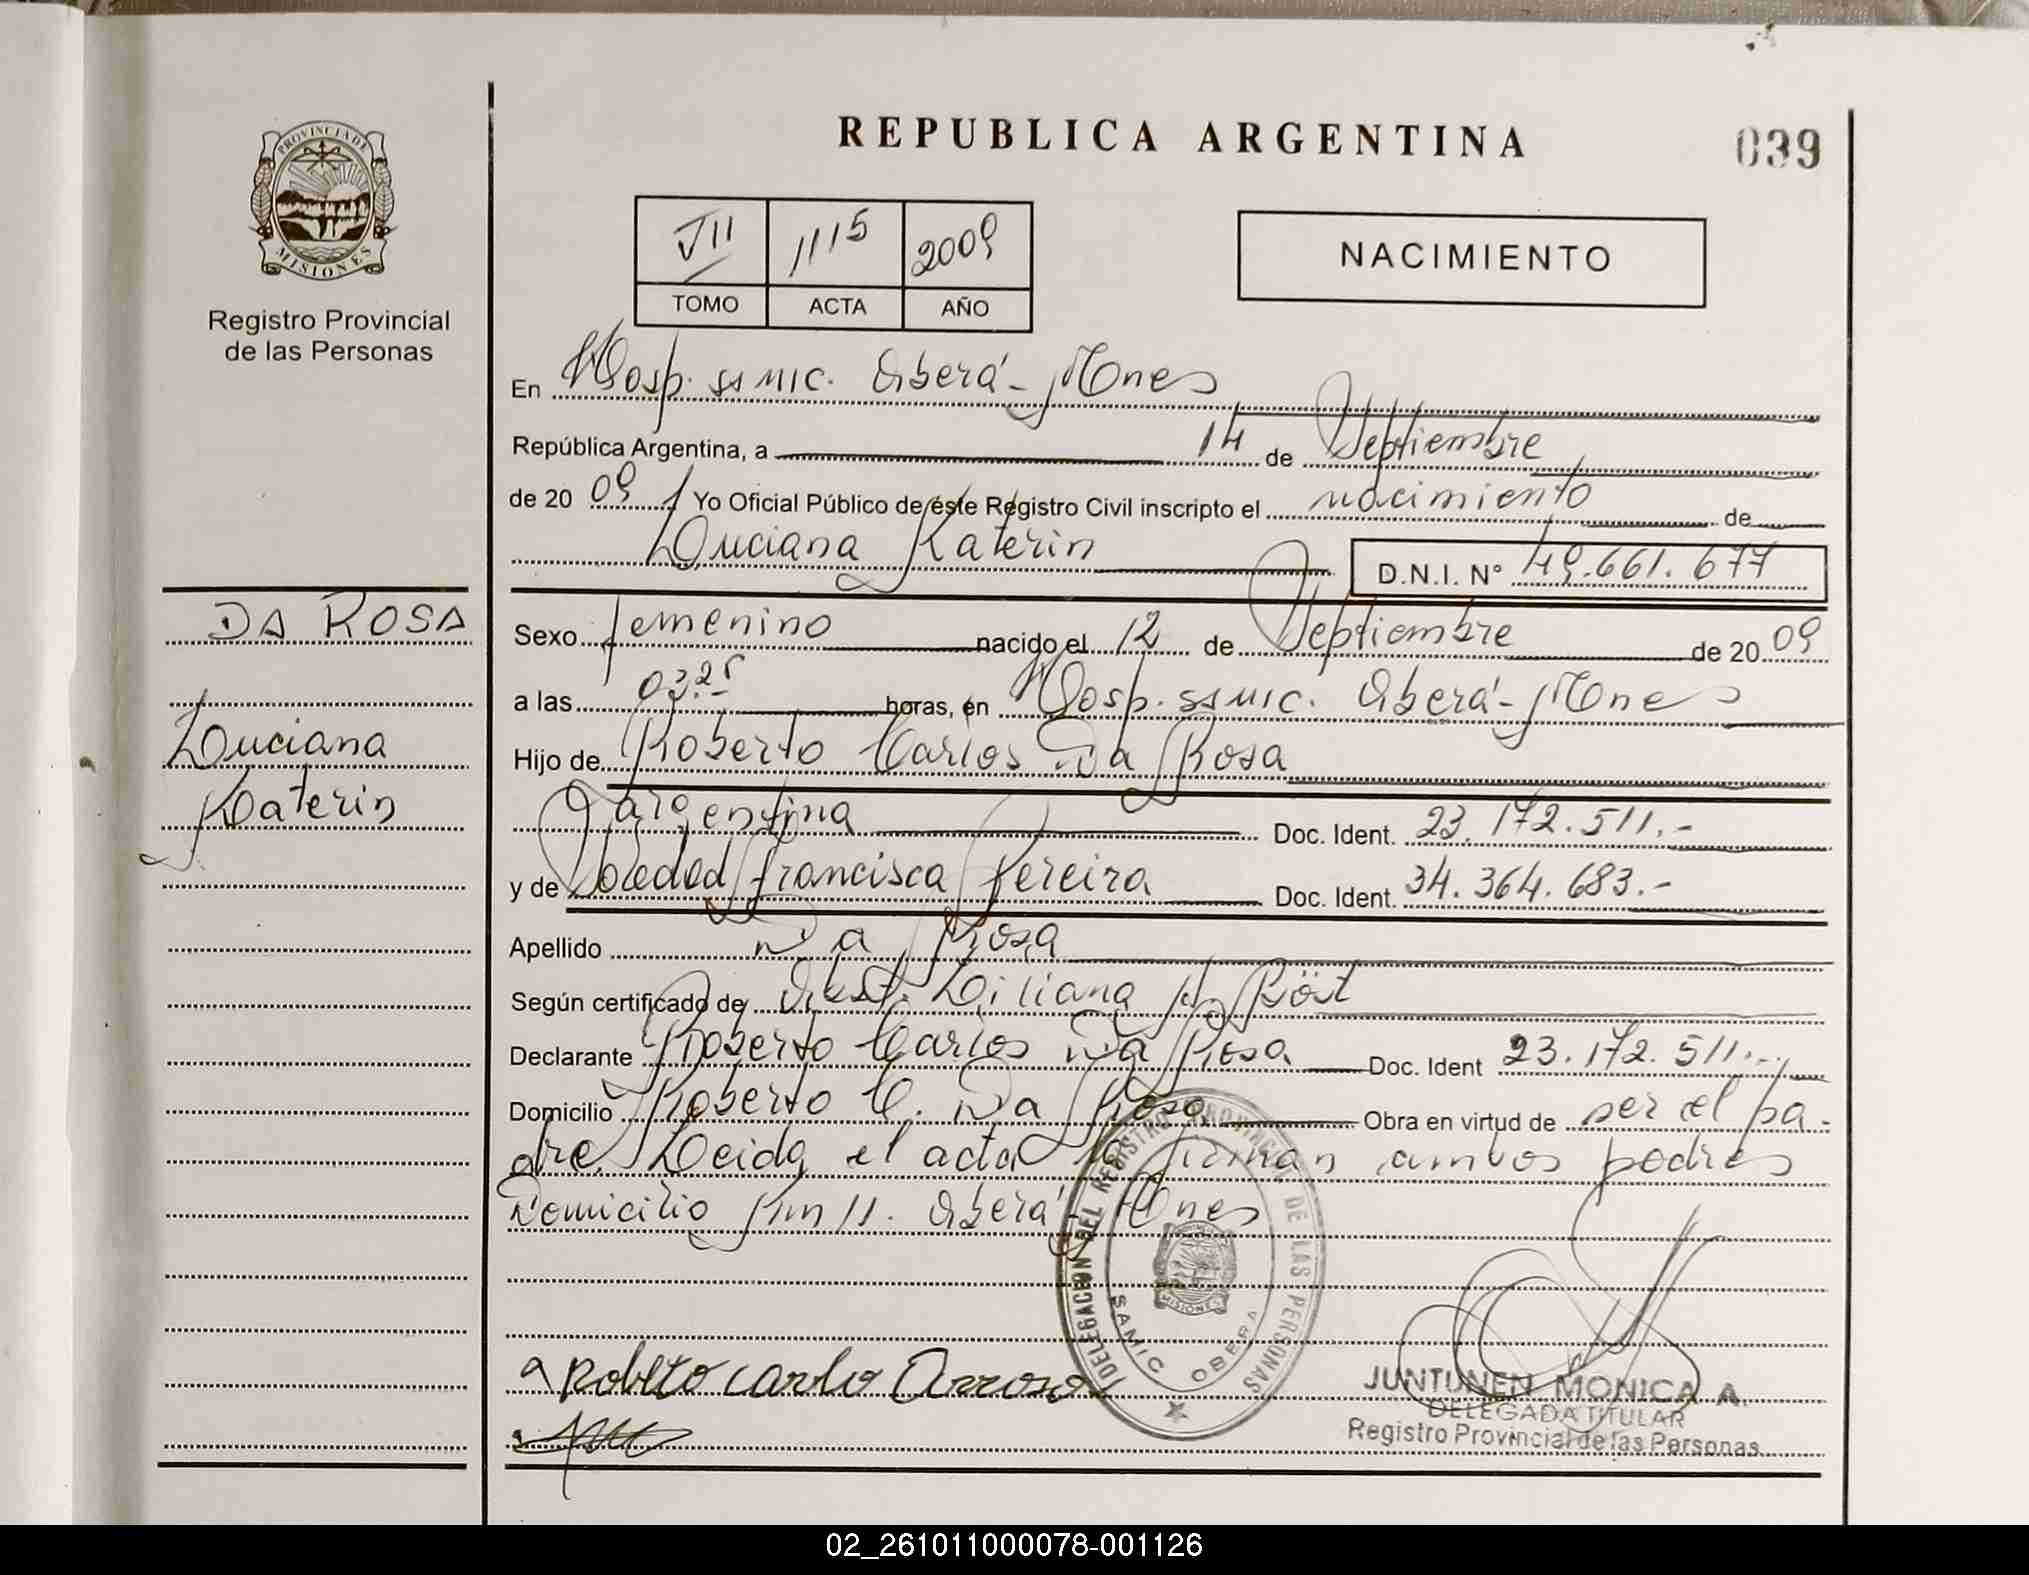 REPUBLICA ARGENTINA
039
PROVINCIA DE
MISIONES
Registro Provincial
de las Personas
VII 1115 2009
TOMO ACTA AÑO
NACIMIENTO
En Hosp. SAMIC. Oberá - Mnes
República Argentina, a 14 de Septiembre
de 20 09 Yo Oficial Público de éste Registro Civil inscripto el nacimiento de
Luciana Katerin D.N.I. N° 49.661.677
DA ROSA
Luciana
Katerin
Sexo femenino nacido el 12 de Septiembre de 20 09
a las 03.25 horas, en Hosp. SAMIC. Oberá - Mnes
Hijo de Roberto Carlos Da Rosa
argentina Doc. Ident. 23.172.511.-
y de Soledad Francisca Pereira Doc. Ident. 34.364.683.-
Apellido Da Rosa
Según certificado de Obst. Liliana H. Röt
Declarante Roberto Carlos Da Rosa Doc. Ident 23.172.511.-
Domicilio Roberto C. Da Rosa Obra en virtud de ser el pa-
dre. Leida el acta la firman ambos padres
Domicilio Km 11. Oberá - Mnes
DELEGACION DEL REGISTRO PROVINCIAL DE LAS PERSONAS
SAMIC OBERA
MISIONES
JUNTUNEN MONICA A.
DELEGADA TITULAR
Registro Provincial de las Personas
02_261011000078-001126